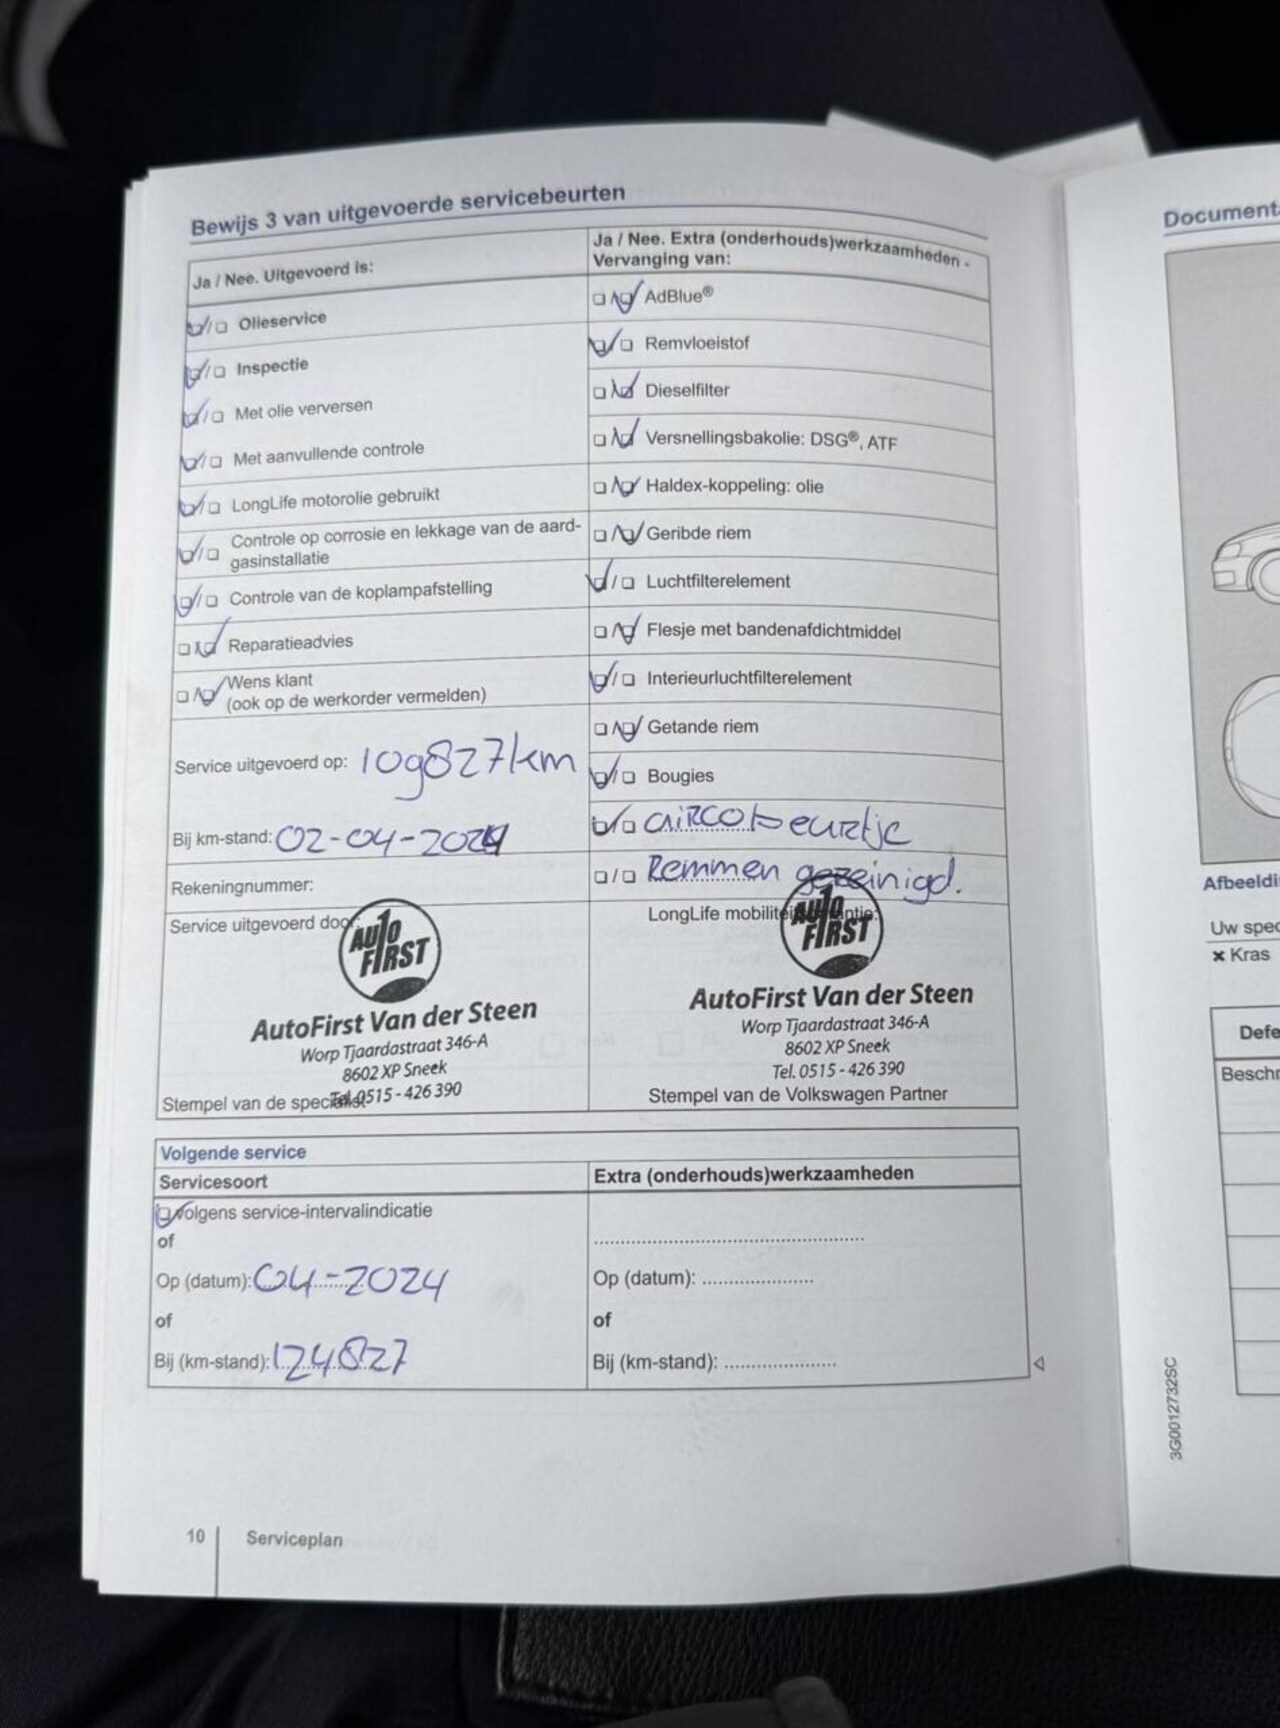 Bewijs 3 van uitgevoerde servicebeurten
Ja / Nee. Uitgevoerd is:
Olieservice
Inspectie
Met olie verversen
Met aanvullende controle
LongLife motorolie gebruikt
Controle op corrosie en lekkage van de aard-
gasinstallatie
Controle van de koplampafstelling
Reparatieadvies
Wens klant
(ook op de werkorder vermelden)
Service uitgevoerd op: 109827km
Bij km-stand: 02-04-2024
Rekeningnummer:
Service uitgevoerd door:
AUTO
FIRST
AutoFirst Van der Steen
Worp Tjaardastraat 346-A
8602 XP Sneek
Tel. 0515 - 426 390
Stempel van de specialist
Ja / Nee. Extra (onderhouds)werkzaamheden -
Vervanging van:
AdBlue®
Remvloeistof
Dieselfilter
Versnellingsbakolie: DSG®, ATF
Haldex-koppeling: olie
Geribde riem
Luchtfilterelement
Flesje met bandenafdichtmiddel
Interieurluchtfilterelement
Getande riem
Bougies
aircobeurtje
Remmen gereinigd.
LongLife mobiliteitsgarantie:
AUTO
FIRST
AutoFirst Van der Steen
Worp Tjaardastraat 346-A
8602 XP Sneek
Tel. 0515 - 426 390
Stempel van de Volkswagen Partner
Volgende service
Servicesoort
Volgens service-intervalindicatie
of
Op (datum): 04-2024
of
Bij (km-stand): 124827
Extra (onderhouds)werkzaamheden
Op (datum):
of
Bij (km-stand):
10 Serviceplan
Document
Afbeeldi
Uw spec
× Kras
Defe
Beschr
3G0012732SC